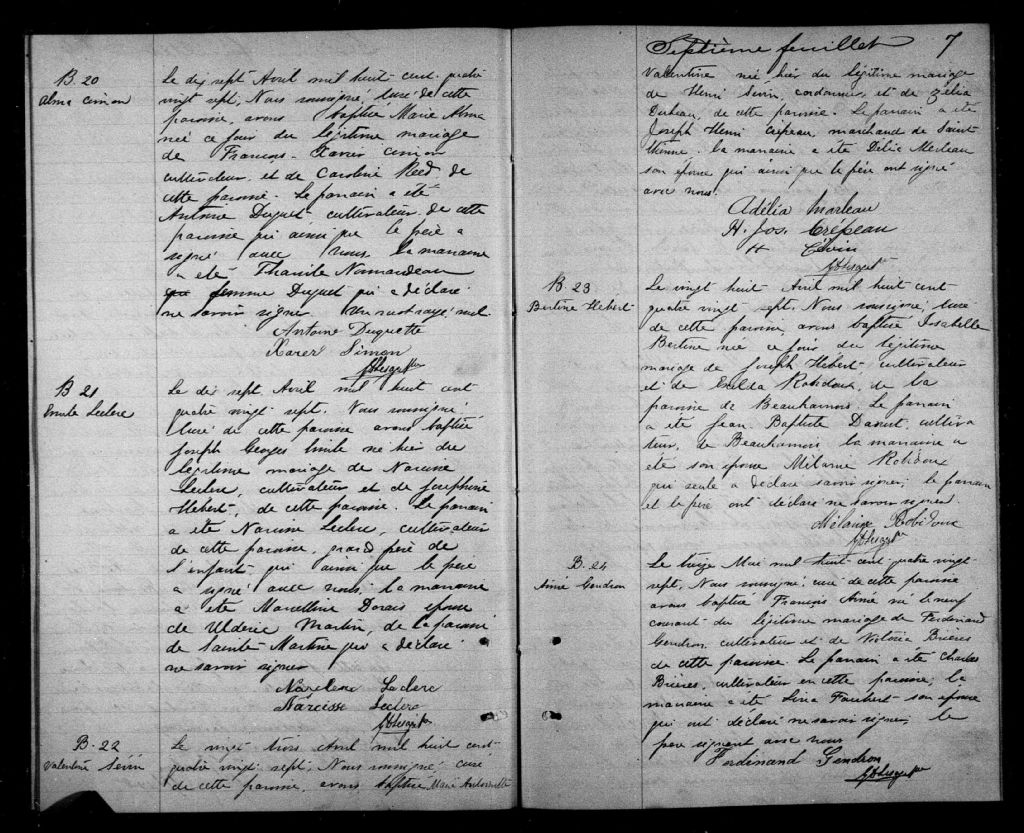 B. 20
Alma Cimon
Le dix sept Avril mil huit cent quatre
vingt sept, Nous soussigné, curé de cette
paroisse, avons baptisé Marie Alma
née ce jour du légitime mariage
de François-Xavier Cimon
cultivateur et de Caroline Reed de
cette paroisse. Le parrain a été
Antoine Duquet cultivateur de cette
paroisse qui ainsi que le père a
signé avec nous la marraine
a été Tharsile Normandeau
femme Duquet qui a déclaré
ne savoir signer. Un mot rayé nul
Antoine Duquette
Xavier Simon
B. 21
Emile Leclerc
Le dix sept Avril mil huit cent
quatre vingt sept. Nous soussigné
Curé de cette paroisse avons baptisé
Joseph Georges Emile né hier du
légitime mariage de Narcisse
Leclerc, cultivateur et de Josephine
Hebert, de cette paroisse. Le parrain
a été Narcisse Leclerc, cultivateur
de cette paroisse, grand père de
l'enfant qui ainsi que le père
a signé avec nous, la marraine
a été Marcelline Dorais épouse
de Ulderic Martin, de la paroisse
de Sainte Martine qui a déclaré
ne savoir signer
Narcisse Leclerc
Narcisse Leclerc
B. 22
Valentine Sévin
Le vingt trois Avril mil huit cent
quatre vingt sept, Nous soussigné curé
de cette paroisse, avons baptisé Marie Antoinette
Septième feuillet 7
Valentine née hier du légitime mariage
de Henri Sévin, cordonnier, et de Zélia
Dubeau, de cette paroisse. Le parrain a été
Joseph Henri Crépeau, marchand de Saint
Etienne. La marraine a été Délia Merleau
son épouse qui ainsi que le père ont signé
avec nous.
Adélia Morleau
H. Jos. Crépeau
H Cévin
B. 23
Bertine Hebert
Le vingt huit Avril mil huit cent
quatre vingt sept, Nous soussigné, curé
de cette paroisse, avons baptisé Isabelle
Bertine née ce jour du légitime
mariage de Joseph Hebert, cultivateur
et de Exilda Robidoux, de la
paroisse de Beauharnois. Le parrain
a été Jean Baptiste Daoust, cultiva
teur, de Beauharnois la marraine a
été son épouse Mélanie Robidoux
qui seule a déclaré savoir signer, le parrain
et le père ont déclaré ne savoir signer.
Mélanie Robidoux
B. 24
Aimé Gendron
Le treize Mai mil huit cent quatre vingt
sept, Nous soussigné curé de cette paroisse
avons baptisé François Aimé né le neuf
courant du légitime mariage de Ferdinand
Gendron, cultivateur et de Victoria Brières
de cette paroisse. Le parrain a été Charles
Brières, cultivateur en cette paroisse, la
marraine a été Lina Faubert son épouse
qui ont déclaré ne savoir signer, le
père signant avec nous
Ferdinand Gendron